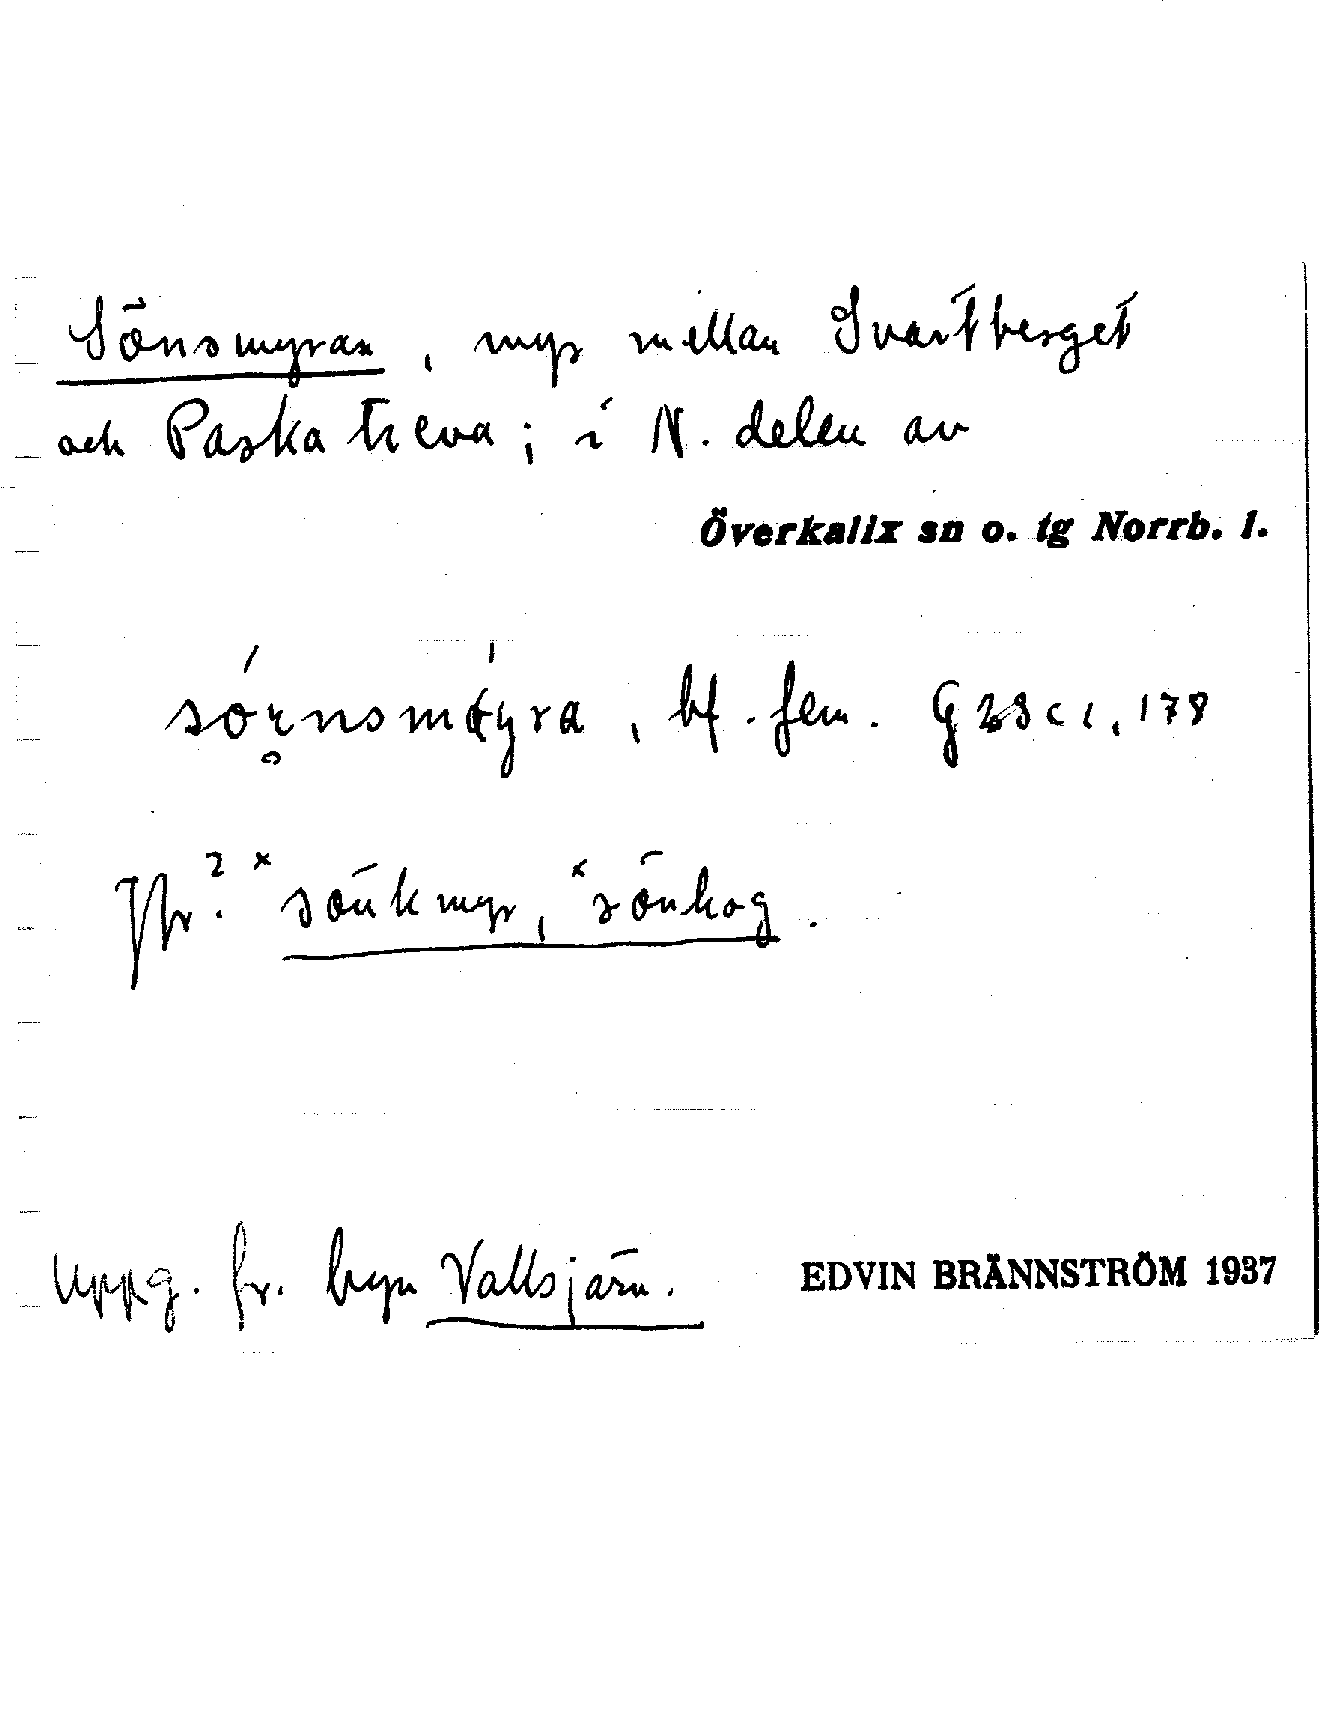 Sönsmyran, myr mellan Svartberget
och Paskatieva; i N. delen av
Överkalix sn o. tg Norrb. l.
bf. fem. G 23 c 1, 178
Jfr.? × sönkmyr, × sönhog.
Uppg. fr. byn Vallsjärn.
EDVIN BRÄNNSTRÖM 1937